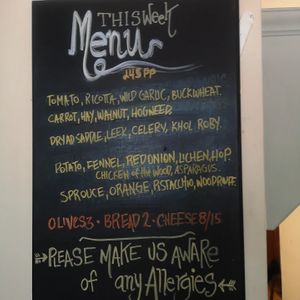 THIS Week
Menu
£45 PP
TOMATO, RICOTTA, WILD GARLIC, BUCKWHEAT.
CARROT, HAY, WALNUT, HOGWEED.
DRYAD SADDLE, LEEK, CELERY, KHOL ROBY.
POTATO, FENNEL, RED ONION, LICHEN, HOP.
CHICKEN of the WOOD, ASPARAGUS.
SPROUCE, ORANGE, PISTACCHIO, WOODRUFF.
OLIVES 3 · BREAD 2 · CHEESE 8/15
PLEASE MAKE US AWARE
of any Allergies